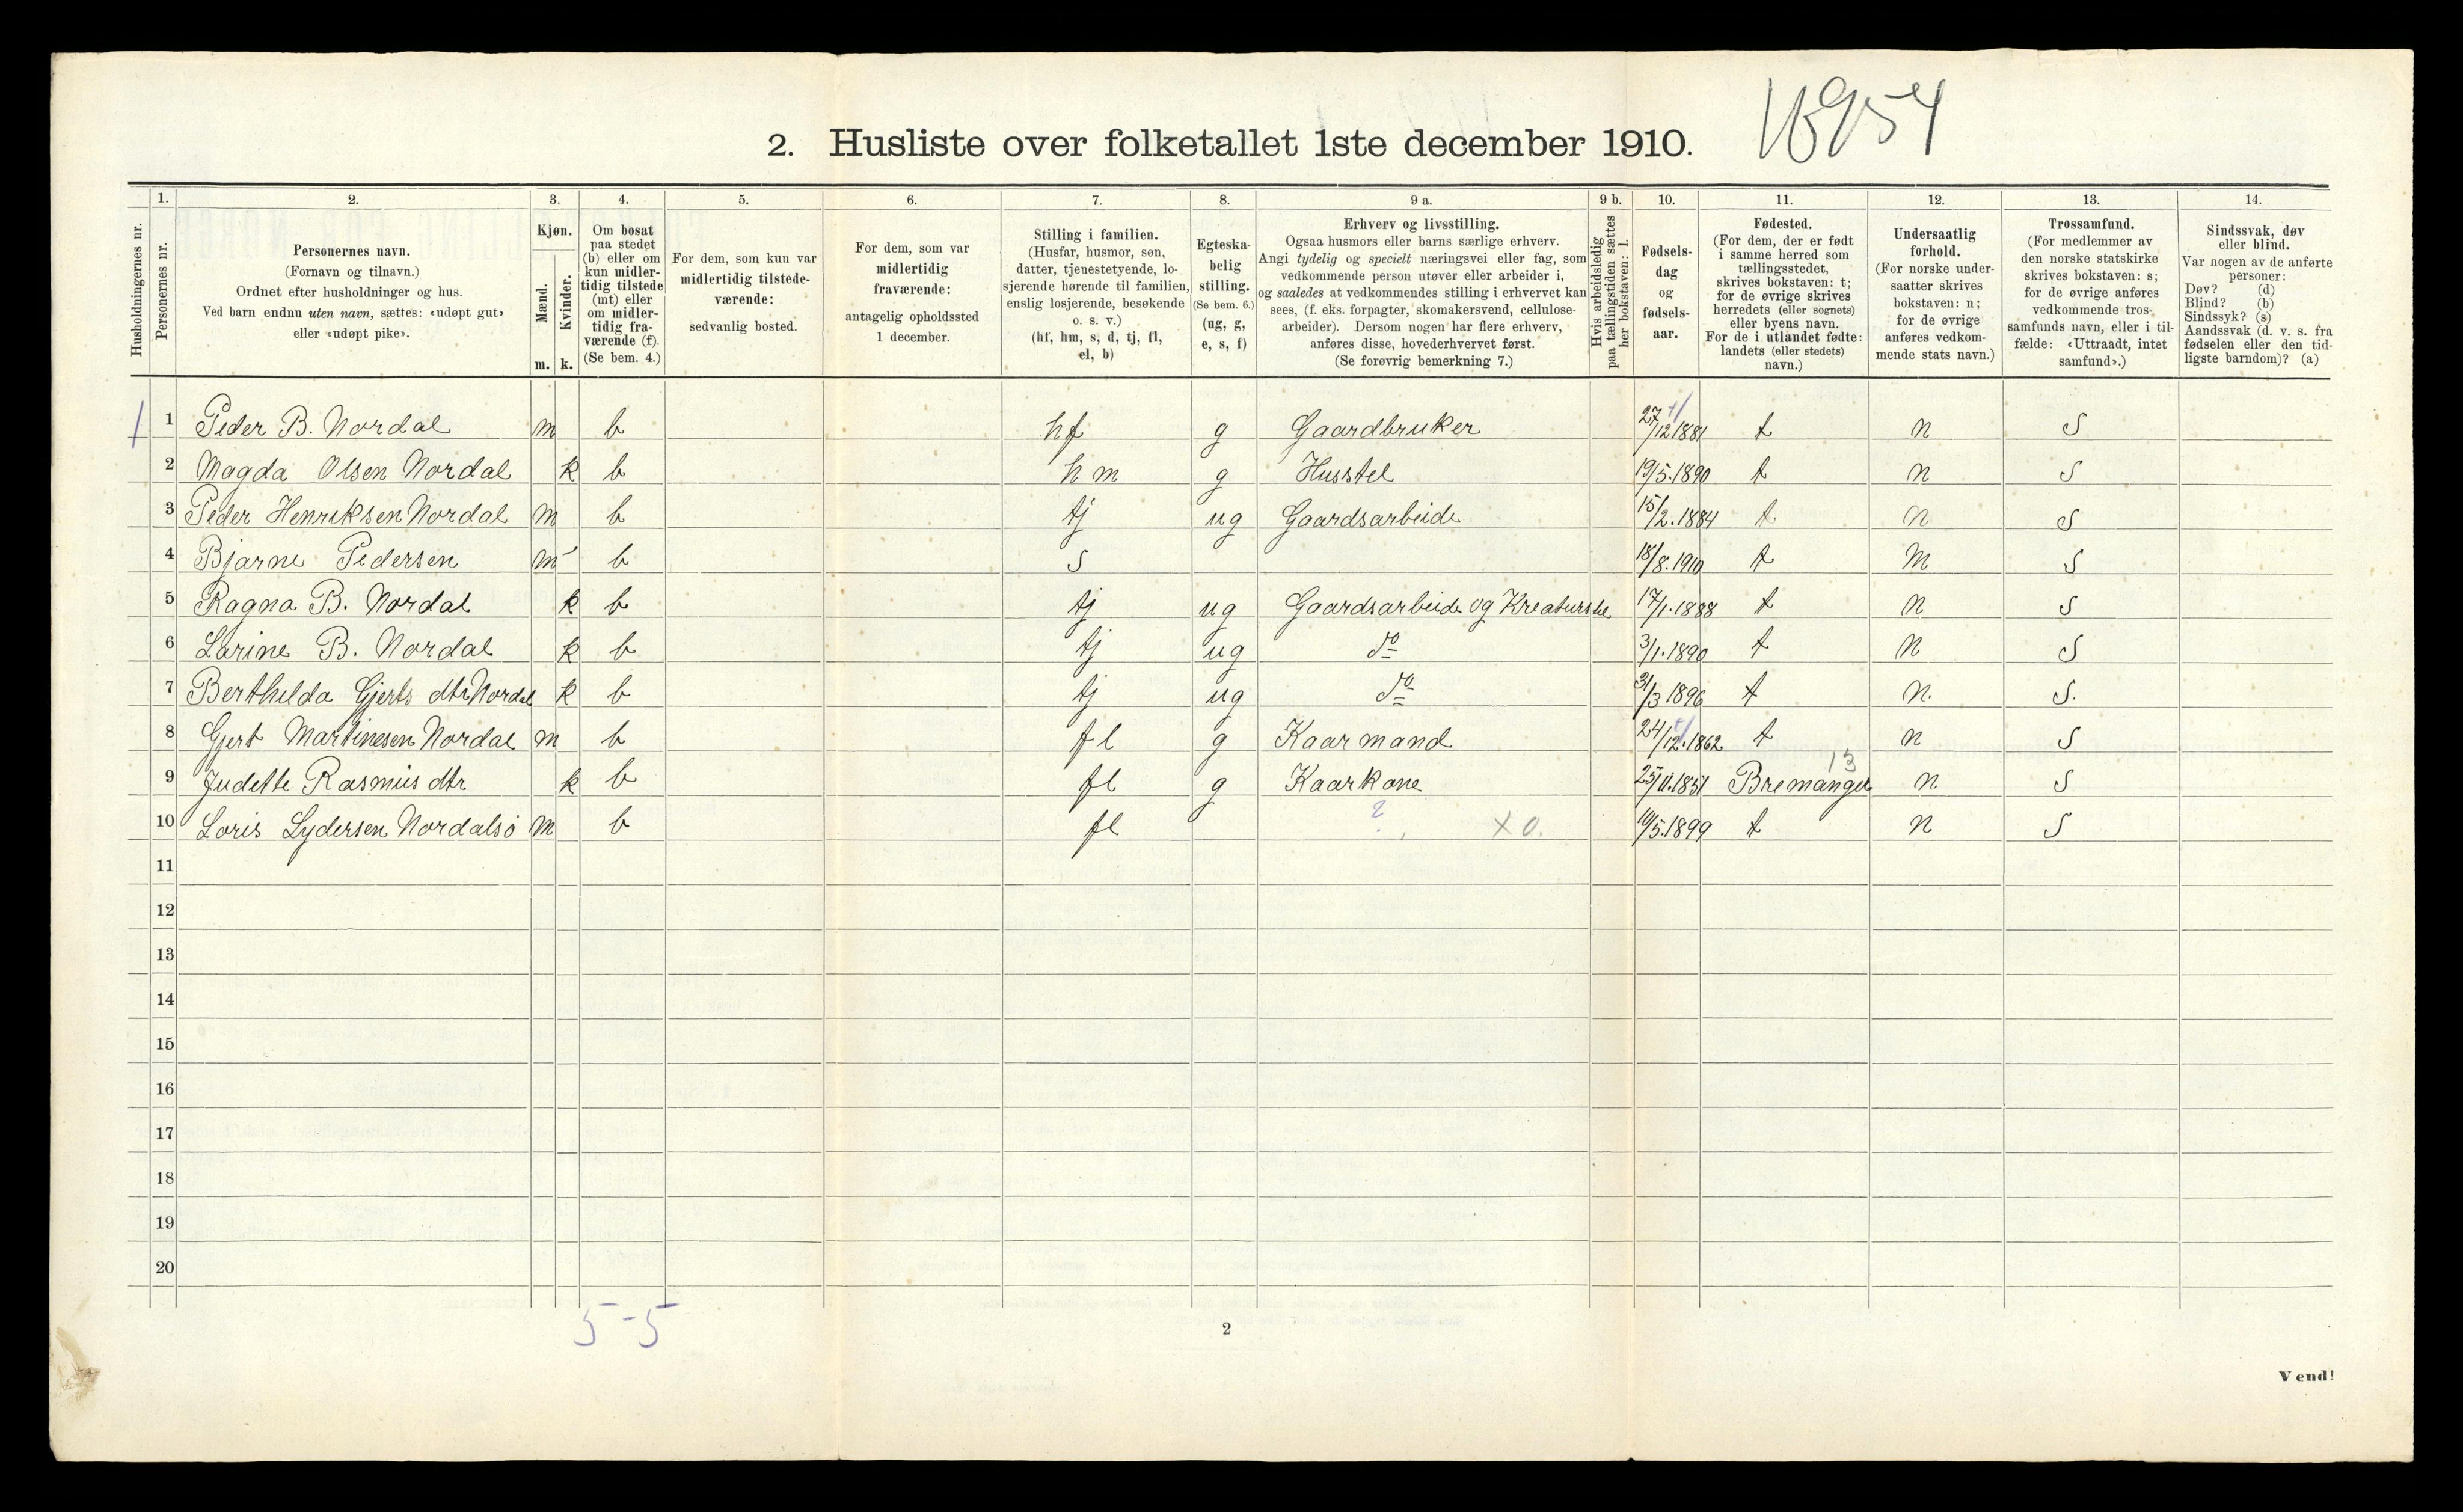 16954
2. Husliste over folketallet 1ste december 1910.
1. 2. 3. 4. 5. 6. 7. 8. 9 a. 9 b. 10. 11. 12. 13. 14.
Husholdningernes nr.
Personernes nr.
Personernes navn.
(Fornavn og tilnavn.)
Ordnet efter husholdninger og hus.
Ved barn endnu uten navn, sættes: «udøpt gut»
eller «udøpt pike».
Kjøn.
Mænd.
Kvinder.
m. k.
Om bosat
paa stedet
(b) eller om
kun midler-
tidig tilstede
(mt) eller
om midler-
tidig fra-
værende (f).
(Se bem. 4.)
For dem, som kun var
midlertidig tilstede-
værende:
sedvanlig bosted.
For dem, som var
midlertidig
fraværende:
antagelig opholdssted
1 december.
Stilling i familien.
(Husfar, husmor, søn,
datter, tjenestetyende, lo-
sjerende hørende til familien,
enslig losjerende, besøkende
o. s. v.)
(hf, hm, s, d, tj, fl,
el, b)
Egteska-
belig
stilling.
(Se bem. 6.)
(ug, g,
e, s, f)
Erhverv og livsstilling.
Ogsaa husmors eller barns særlige erhverv.
Angi tydelig og specielt næringsvei eller fag, som
vedkommende person utøver eller arbeider i,
og saaledes at vedkommendes stilling i erhvervet kan
sees, (f. eks. forpagter, skomakersvend, cellulose-
arbeider). Dersom nogen har flere erhverv,
anføres disse, hovederhvervet først.
(Se forøvrig bemerkning 7.)
Hvis arbeidsledig
paa tællingstiden sættes
her bokstaven: l.
Fødsels-
dag
og
fødsels-
aar.
Fødested.
(For dem, der er født
i samme herred som
tællingsstedet,
skrives bokstaven: t;
for de øvrige skrives
herredets (eller sognets)
eller byens navn.
For de i utlandet fødte:
landets (eller stedets)
navn.)
Undersaatlig
forhold.
(For norske under-
saatter skrives
bokstaven: n;
for de øvrige
anføres vedkom-
mende stats navn.)
Trossamfund.
(For medlemmer av
den norske statskirke
skrives bokstaven: s;
for de øvrige anføres
vedkommende tros-
samfunds navn, eller i til-
fælde: «Uttraadt, intet
samfund».)
Sindssvak, døv
eller blind.
Var nogen av de anførte
personer:
Døv? (d)
Blind? (b)
Sindssyk? (s)
Aandssvak (d. v. s. fra
fødselen eller den tid-
ligste barndom)? (a)
1 1 Peder B. Nordal m b hf g Gaardbruker 27/12 1881 t n S
2 Magda Olsen Nordal k b hm g Husstel 19/5.1890 t n S
3 Peder Henriksen Nordal m b tj ug Gaardsarbeide 15/2.1884 t n S
4 Bjarne Pedersen m b S 18/8.1910 t n S
5 Ragna B. Nordal k b tj ug Gaardsarbeide og Kreaturstel 17/1.1888 t n S
6 Larine B. Nordal k b tj ug do 3/1.1890 t n S
7 Berthilda Gjerts dtr Nordal k b tj ug do 31/3 1896 t n. S.
8 Gjert Martinesen Nordal m b fl g Kaarmand 24/12.1862 t n S
9 Judette Rasmus dtr k b fl g Kaarkone 25/11.1851 Bremanger 13 n S
10 Loris Lydersen Nordalsö m b fl ? x 0. 10/5.1899 t n S
11
12
13
14
15
16
17
18
19
20
5-5
2
Vend!